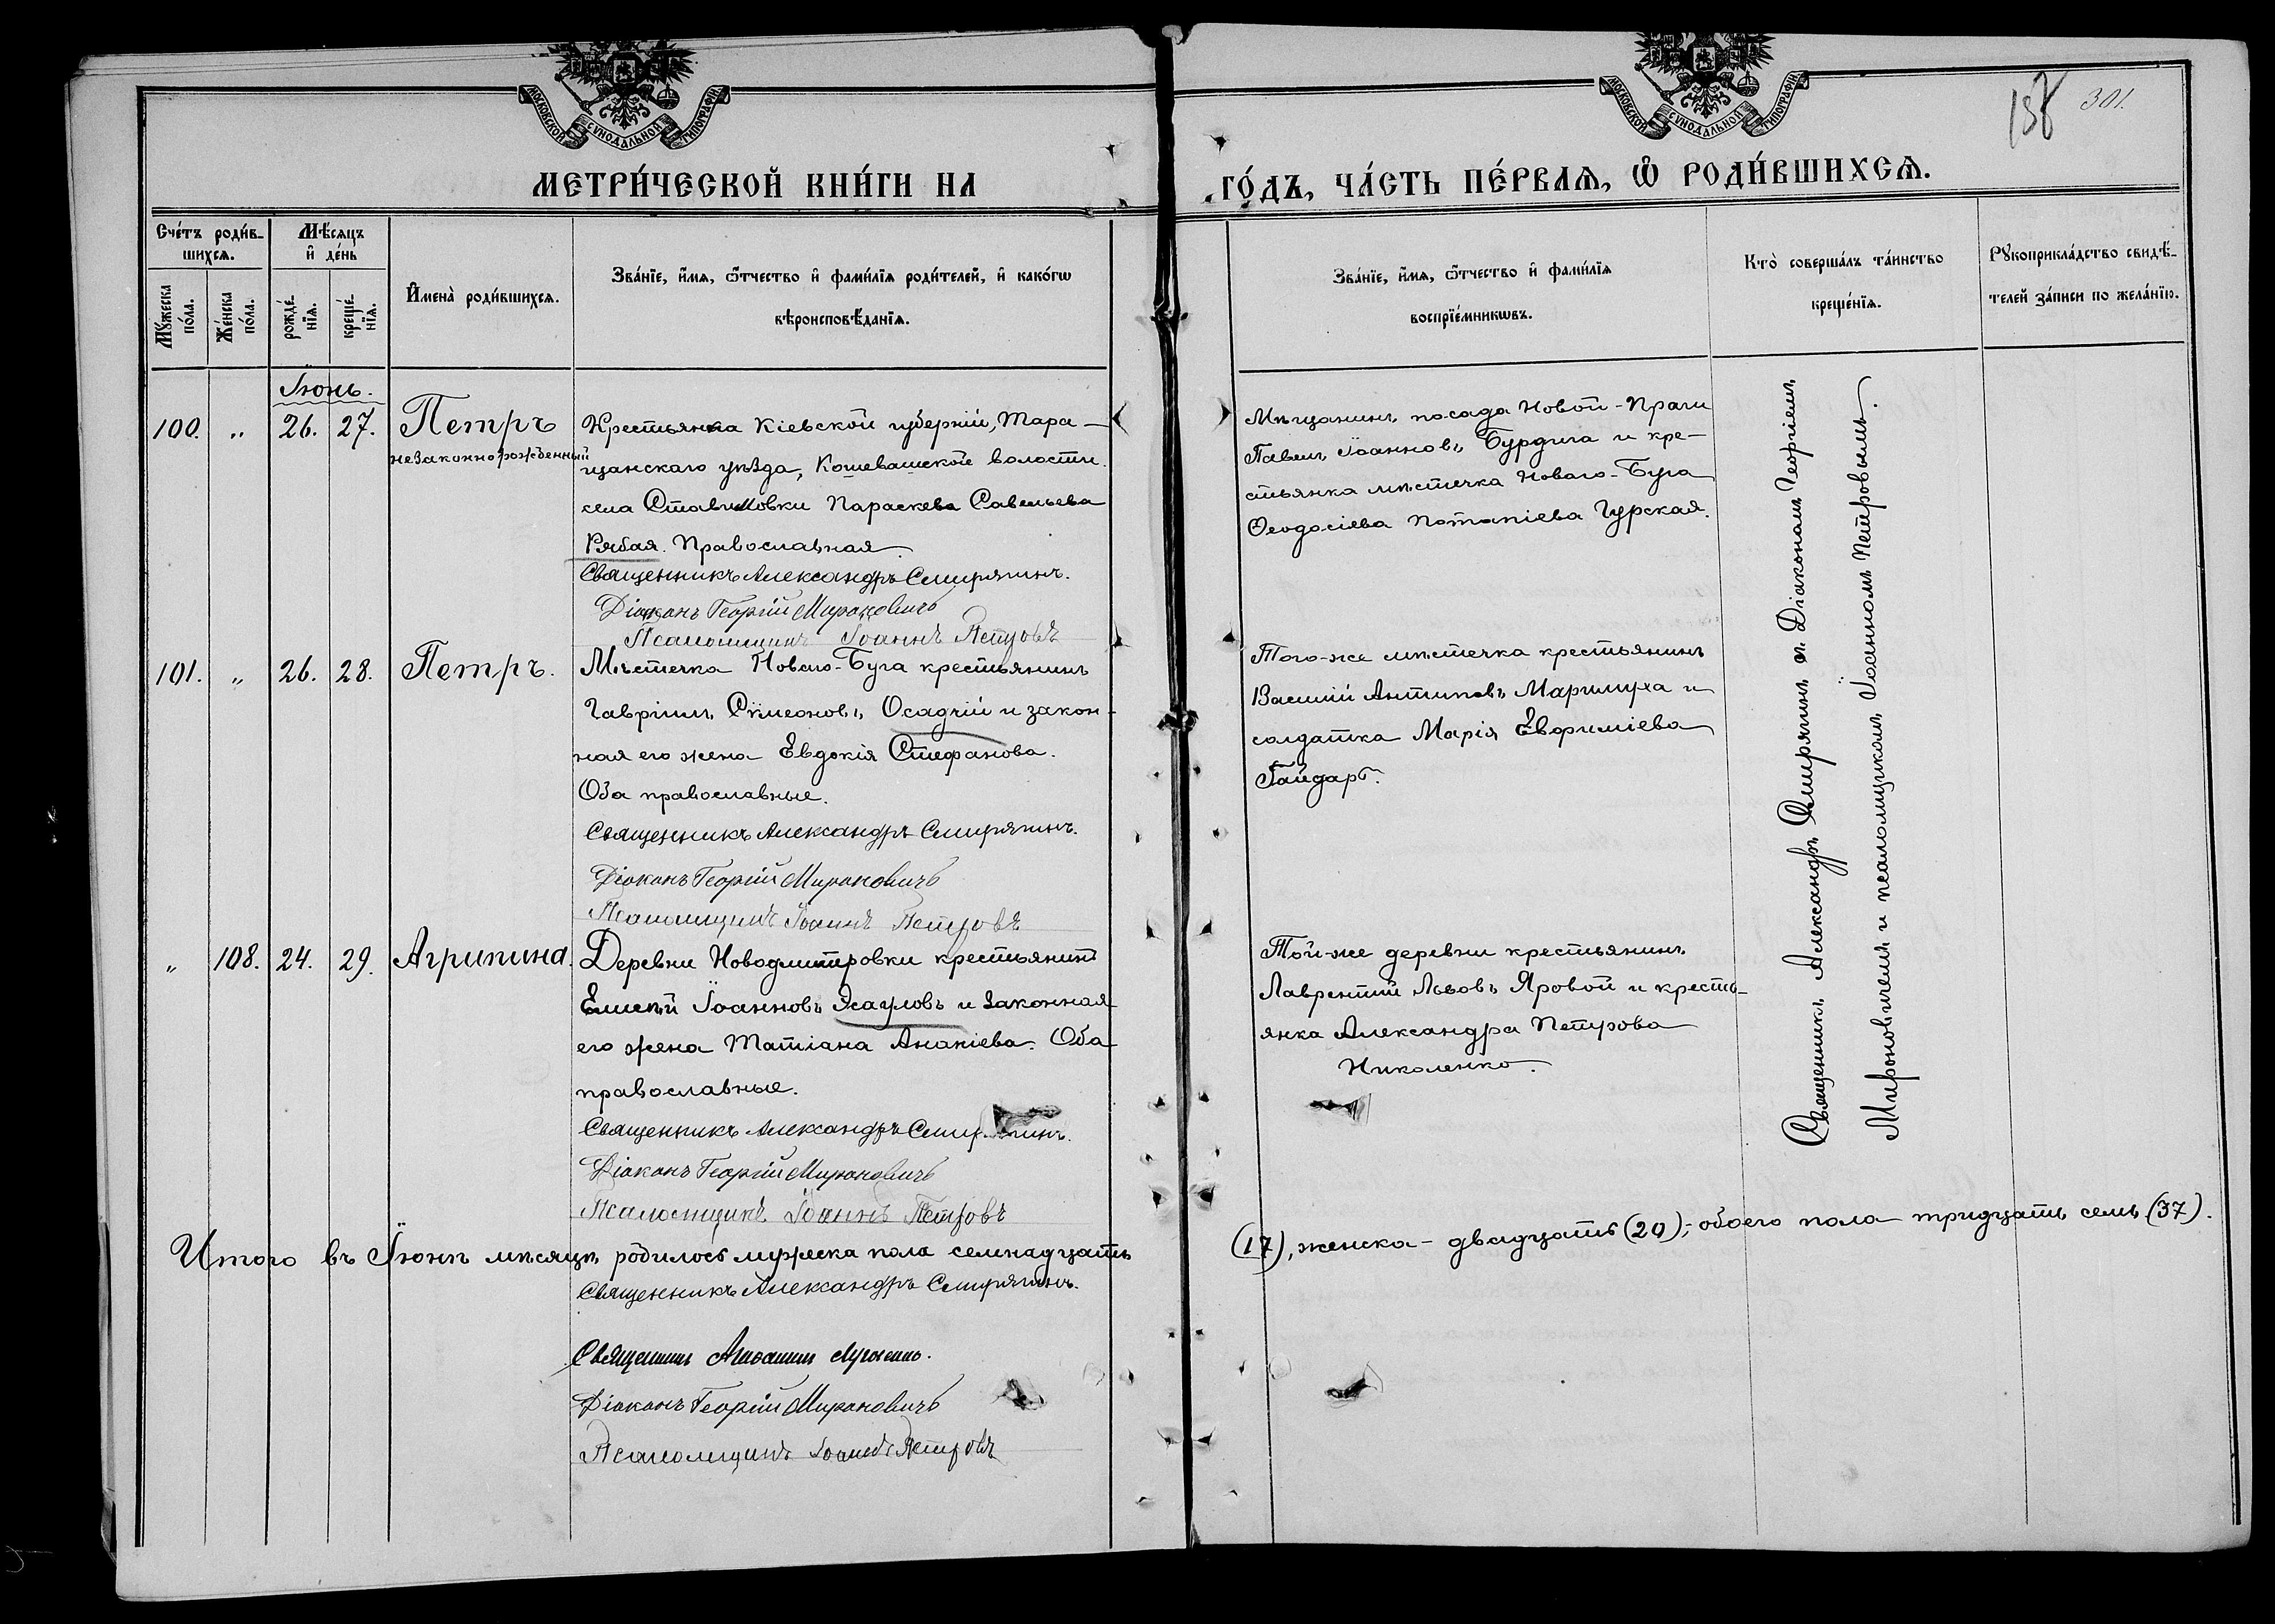 МОСКОВСКОЙ СѴНОДАЛЬНОЙ ТИПОГРАФІИ
МОСКОВСКОЙ СѴНОДАЛЬНОЙ ТИПОГРАФІИ
301.
МЕТРИ́ЧЕСКОЙ КНИ́ГИ НА
ГО́ДЪ, ЧА́СТЬ ПЕ́РВАЯ, Ѽ РОДИ́ВШИХСѦ.
Сче́тъ роди́в-
шихсѧ.
Мѣ́сяцъ
и҆ де́нь
Мꙋ́жеска
по́ла.
Же́нска
по́ла.
рожде́-
нїѧ.
креще́-
нїѧ.
И҆мена̀ роди́вшихсѧ.
Зва́нїе, и҆́мя, ѻ҆́тчество и҆ фами́лїя роди́телей, и҆ како́гѡ
вѣроисповѣ́данїя.
Зва́нїе, и҆́мя, ѻ҆́тчество и҆ фами́лїя
воспрїе́мникѡвъ.
Кто̀ соверша́лъ та́инство
креще́нїя.
Рꙋкоприкла́дство свидѣ́-
телей за́писи по жела́нїю.
Іюнь.
100. " 26. 27. Петръ
незаконнорожденный
Крестьянка Кіевской губерніи, Тара-
щанскаго уѣзда, Кошеватской волости
села Ставиловки Параскева Савельева
Рябая. Православная.
Священникъ Александръ Смирягинъ.
Діаконъ Георгій Мироновичъ
Псаломщикъ Іоаннъ Петровъ
Мѣщанинъ посада Новой-Праги
Павелъ Іоанновъ Бурдига и кре-
стьянка мѣстечка Новаго-Буга
Ѳеодосіева Потапіева Гурская.
101. " 26. 28. Петръ.
Мѣстечка Новаго-Буга крестьянинъ
Гавріилъ Сѵмеоновъ Осадчій и закон-
ная его жена Евдокія Стефанова.
Оба православные.
Священникъ Александръ Смирягинъ.
Діаконъ Георгій Мироновичъ
Псаломщикъ Іоаннъ Петровъ
Того-же мѣстечка крестьянинъ
Василій Антиповъ и
солдатка Марія Евфиміева
Гайдаръ.
" 108. 24. 29. Агрипина.
Деревни Новодмитровки крестьянинъ
Елисѣй Іоанновъ Есауловъ и законная
его жена Татіана Ананіева. Оба
православные.
Священникъ Александръ Смирягинъ.
Діаконъ Георгій Мироновичъ
Псаломщикъ Іоаннъ Петровъ
Той-же деревни крестьянинъ
Лаврентій Львовъ Яровой и кресть-
янка Александра Петрова
Николенко.
Священникъ Александръ Смирягинъ съ Діакономъ Георгіемъ
Мироновичемъ и псаломщикомъ Іоанномъ Петровымъ.
Итого въ Іюнѣ мѣсяцѣ родилось мужеска пола семнадцать
(17), женска - двадцать (20); обоего пола тридцать семь (37).
Священникъ Александръ Смирягинъ.
Священникъ
Діаконъ Георгій Мироновичъ
Псаломщикъ Іоаннъ Петровъ